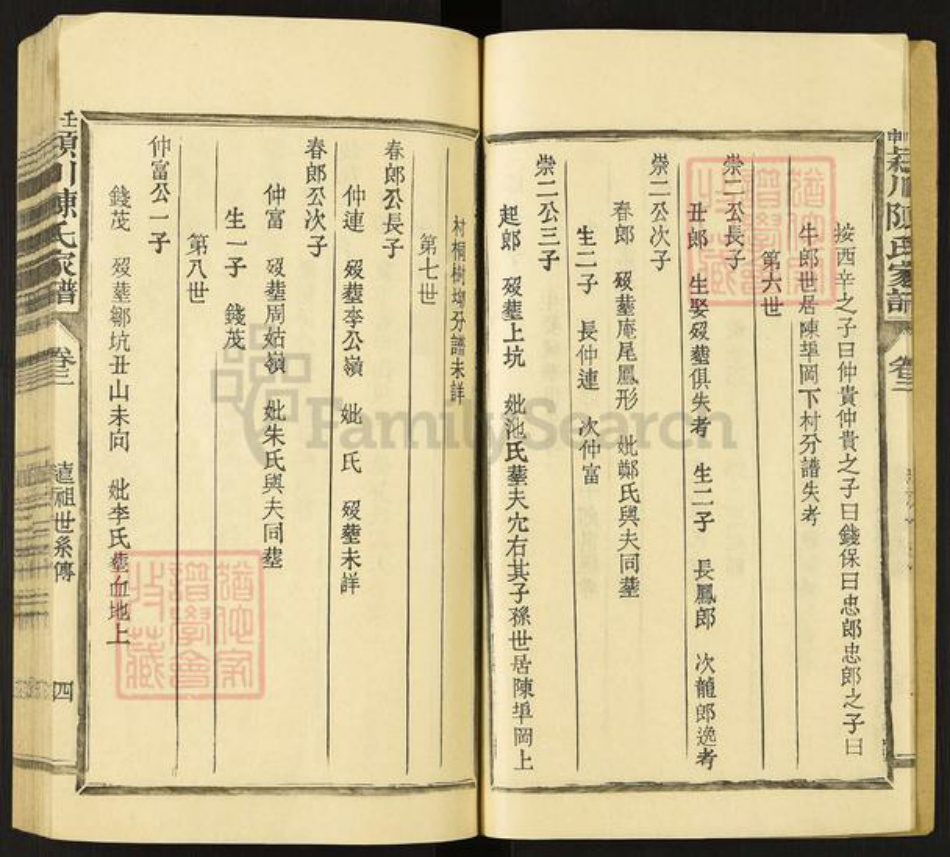 潁川陳氏家譜
卷三
按西辛之子曰仲貴仲貴之子曰錢保曰忠郎忠郎之子曰
牛郎世居陳埠岡下村分譜失考
第六世
崇二公長子
丑郎 生娶歿塟俱失考 生二子 長鳳郎 次龍郎逸考
崇二公次子
春郎 歿塟庵尾鳳形 妣鄭氏與夫同塟
生二子 長仲連 次仲富
崇二公三子
起郎 歿塟上坑 妣池氏塟夫穴右其子孫世居陳埠岡上
村桐樹坳分譜未詳
第七世
春郎公長子
仲連 歿塟李公嶺 妣 氏 歿塟未詳
春郎公次子
仲富 歿塟周姑嶺 妣朱氏與夫同塟
生一子 錢茂
第八世
仲富公一子
錢茂 歿塟鄒坑丑山未向 妣李氏塟血地上
潁川陳氏家譜
卷三
遠祖世系傳
四
FamilySearch